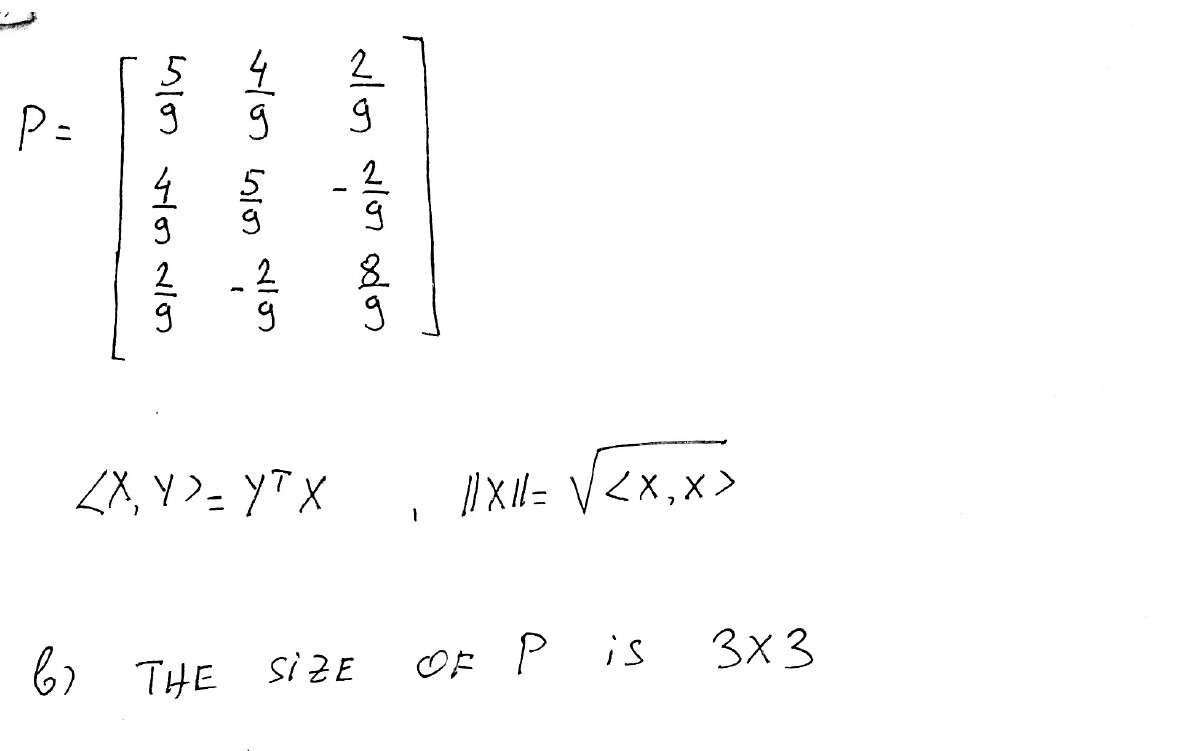 P = [ 5/9 4/9 2/9
4/9 5/9 -2/9
2/9 -2/9 8/9 ]
<X, Y> = Y^T X , ||X|| = √<X, X>
b) THE SiZE OF P is 3X3